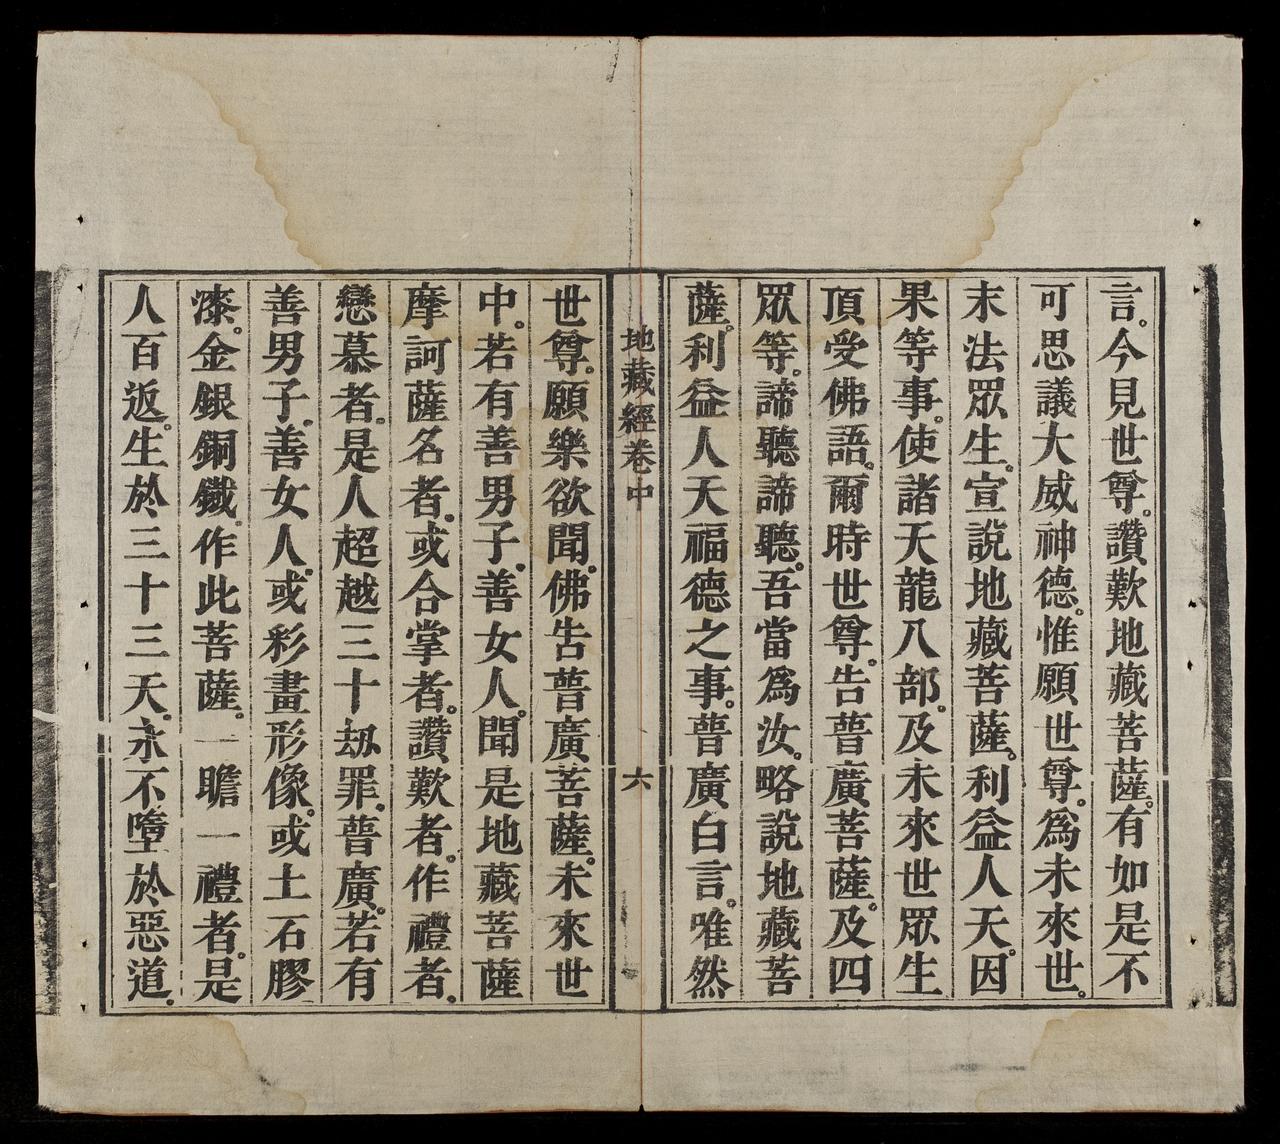 言。今見世尊。讚歎地藏菩薩。有如是不
可思議大威神德。惟願世尊。爲未來世。
末法眾生。宣說地藏菩薩。利益人天。因
果等事。使諸天龍八部。及未來世眾生
頂受佛語。爾時世尊。告普廣菩薩。及四
眾等。諦聽諦聽。吾當爲汝。略說地藏菩
薩。利益人天福德之事。普廣白言。唯然
地藏經卷中
六
世尊。願樂欲聞。佛告普廣菩薩。未來世
中。若有善男子。善女人。聞是地藏菩薩
摩訶薩名者。或合掌者。讚歎者。作禮者。
戀慕者。是人超越三十劫罪。普廣。若有
善男子。善女人。或彩畫形像。或土石膠
漆。金銀銅鐵。作此菩薩。一瞻一禮者。是
人百返。生於三十三天。永不墮於惡道。